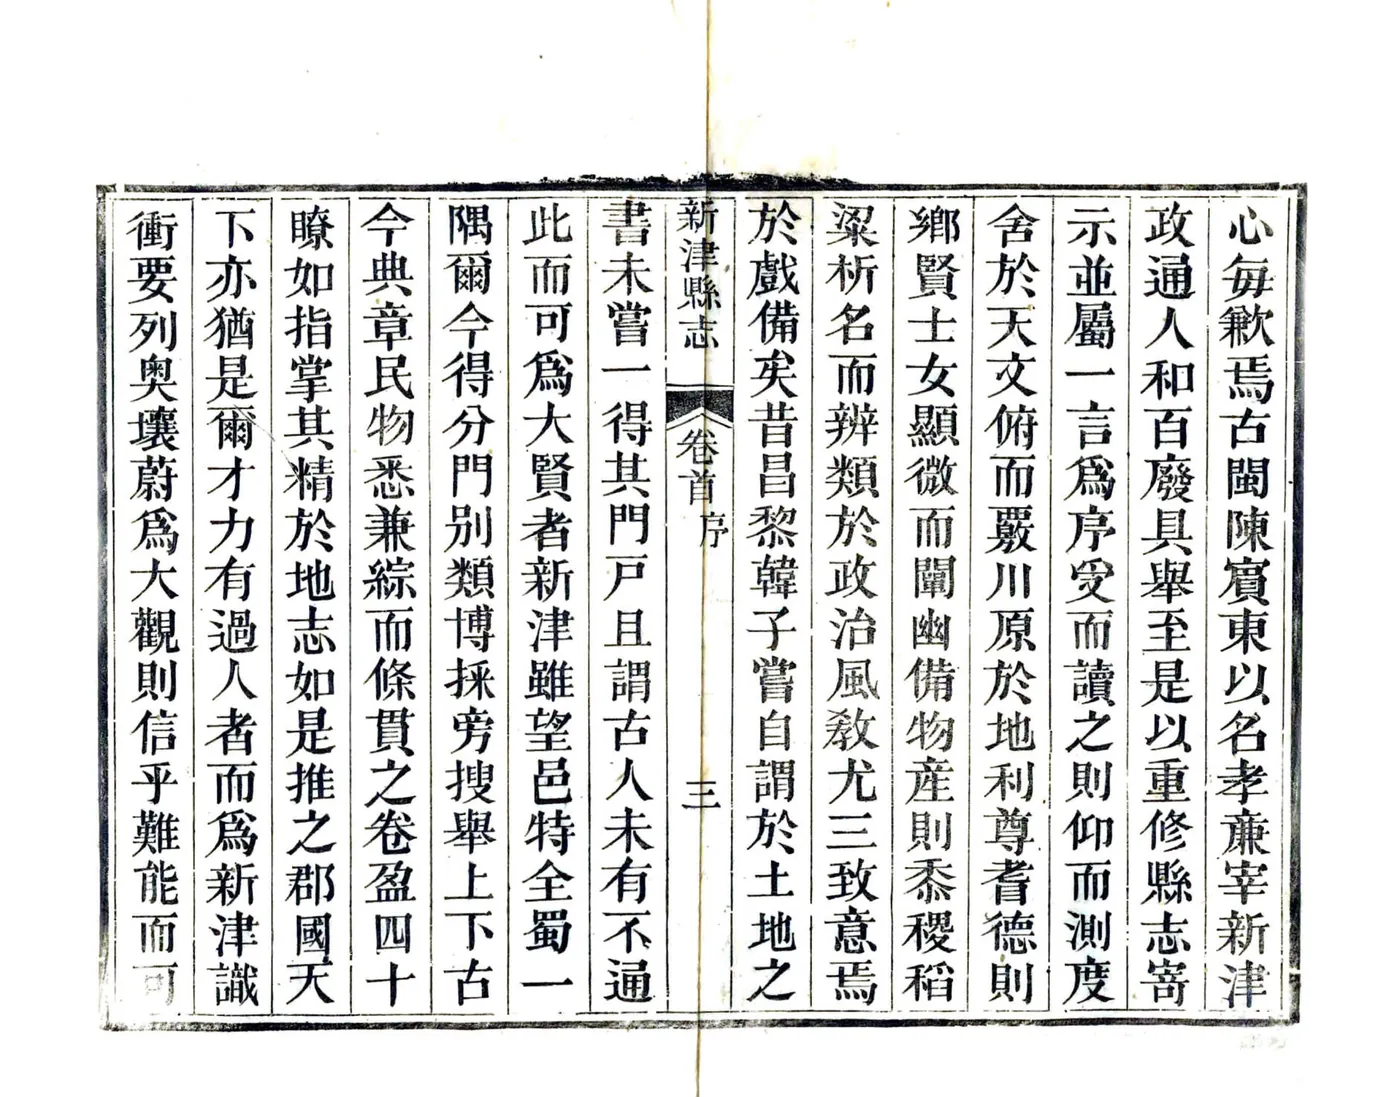 心每歉焉古閩陳賓東以名孝亷宰新津
政通人和百廢具舉至是以重修縣志寄
示並屬一言爲序受而讀之則仰而測度
舍於天文俯而覈川原於地利尊耆德則
鄉賢士女顯微而闡幽備物產則黍稷稻
粱析名而辨類於政治風敎尤三致意焉
於戲備矣昔昌黎韓子嘗自謂於土地之
新津縣志
卷首
序
三
書未嘗一得其門戸且謂古人未有不通
此而可爲大賢者新津雖望邑特全蜀一
隅爾今得分門別類博採旁搜舉上下古
今典章民物悉兼綜而條貫之卷盈四十
瞭如指掌其精於地志如是推之郡國天
下亦猶是爾才力有過人者而爲新津識
衝要列奧壤蔚爲大觀則信乎難能而可